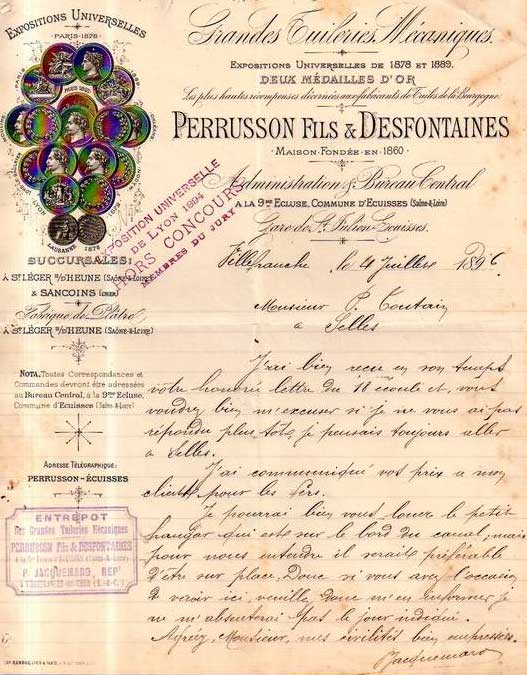 Expositions Universelles
PARIS 1878
PARIS 1867
LYON
LAUSANNE 1876
Grandes Tuileries Mécaniques.
Expositions Universelles de 1878 et 1889.
DEUX MÉDAILLES D'OR
Les plus hautes récompenses décernées aux fabricants de Tuiles de la Bourgogne
PERRUSSON FILS & DESFONTAINES
MAISON FONDÉE EN 1860
Administration & Bureau Central
A LA 9me ECLUSE, COMMUNE D'ECUISSES (Saône & Loire)
Gare de St Julien-Ecuisses.
EXPOSITION UNIVERSELLE
DE LYON 1894
HORS CONCOURS
MEMBRES DU JURY
SUCCURSALES:
À St LÉGER S/D'HEUNE (SAÔNE & LOIRE)
& SANCOINS (CHER)
Fabrique de Plâtre
À St LÉGER S/D'HEUNE (SAÔNE & LOIRE)
NOTA. Toutes Correspondances et
Commandes devront être adressées
au Bureau Central, à la 9me Ecluse,
Commune d'Ecuisses (Saône & Loire)
ADRESSE TÉLÉGRAPHIQUE:
PERRUSSON-ÉCUISSES
ENTREPOT
des Grandes Tuileries Mécaniques
PERRUSSON Fils & DESFONTAINES
P. JACQUEMARD, REPt
Villefranche le 4 Juillet 1896
Monsieur P. Toutain
a Selles
J'ai bien recu en son temps
votre honoré lettre du 18 écoulé et vous
voudrez bien m'excuser si je ne vous ai pas
répondu plus tôt je pensais toujours aller
a Selles.
J'ai communiqué vos prix a mon
client pour les fers.
Je pourrai bien vous louer le petit
hangar qui est sur le bord du canal, mais
pour nous entendre il serait préférable
d'être sur place. Donc si vous avez l'occasion
de venir ici, veuillez donc m'en informer je
ne m'absenterai pas le jour indiqué.
Agréez, Monsieur, mes civilités bien empressées.
Jacquemard